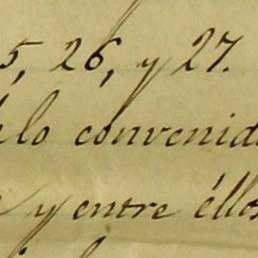 5, 26, y 27.
lo convenid
y entre éllos